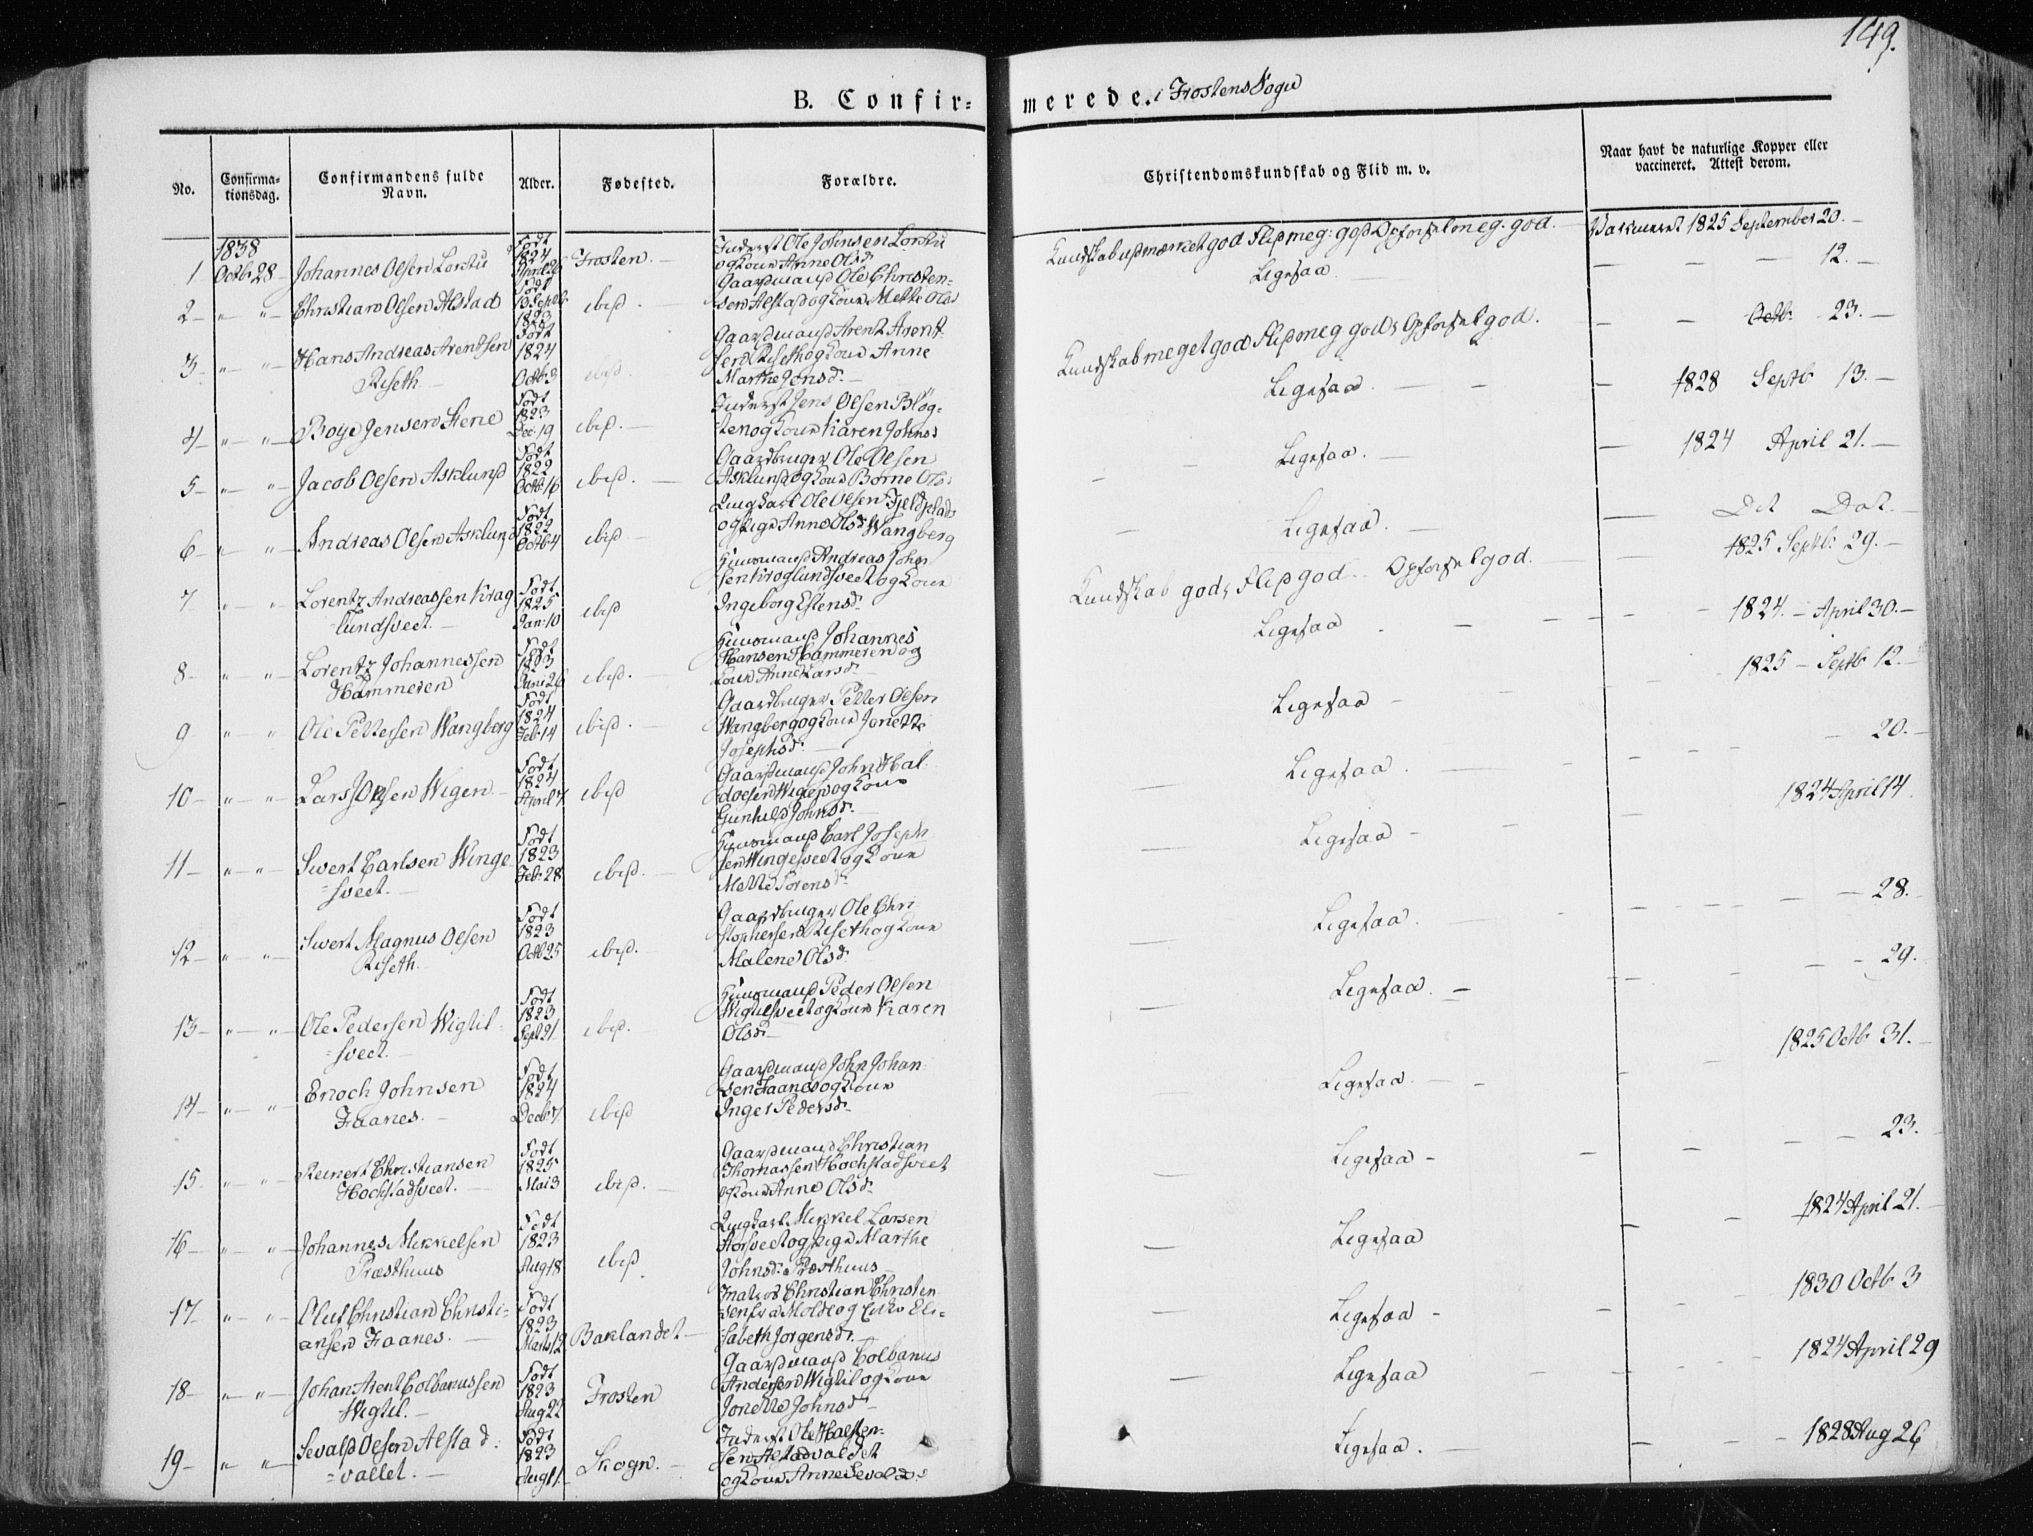 149.
B. Confir-merede. i Frostens Sogn
No. Confirmationsdag. Confirmandens fulde Navn. Alder. Fødested. Forældre. Christendomskundskab og Flid m. v. Naar havt de naturlige Kopper eller vaccineret. Attest derom.
1838
1 Octb 28 Johannes Olsen Lorstu Født 1824 April 26 Frosten. Inderst Ole Johnsen Lorstu og Kone Anne Olsd. Kundskab udmærket god Flid meg: god Opførsel meg. god. Vaccineret 1825 September 20.
2 " " Christian Olsen Alstad Født 13 Septb 1823 ibid. Gaardmand Ole Christensen Alstad og Kone Mette Olsd Ligesaa 12.
3 " " Hans Andreas Arentsen Riseth Født 1824 Octb 3 ibid. Gaardmand Arent Arentsen Riseth og Kone Anne Marthe Jonsd. Kundskab meget god Flid meg god Opførsel god. Octb. 23.
4 " " Boye Jensen Stene Født 1823 Dec 19 ibid. Inderst Jens Olsen og Kone Karen Johnsd Ligesaa 1828 Septb 13.
5 " " Jacob Olsen Asklund Født 1822 Octb 16 ibid. Gaardbruger Ole Olsen Asklund og Kone Børne Olsd Ligesaa. 1824 April 21.
6 " " Andreas Olsen Asklund Født 1822 Octb 4 ibid Ungkarl Ole Olsen og Pige Anne Olsd Wangberg Ligesaa. Dit Dat.
7 " " Lorentz Andreassen Kroglundsveet. Født 1825 Jan: 10 ibid Huusmand Andreas Johnsen Kroglundsveet og Kone Ingeborg Estensd. Kundskab god, Flid god. Opførsel god. 1825 Septb. 29.
8 " " Lorentz Johannessen Hammeren Født 1823 Juni 26 ibid. Huusmand Johannes Hansen Hammeren og Kone Anne Larsd. Ligesaa 1824. April 30.
9 " " Ole Pettersen Wangberg Født 1824 Feb 14 ibid. Gaardbruger Petter Olsen Wangberg og Kone Jonette Josephsd. Ligesaa 1825 Septb 12.
10 " " Lars Johnsen Wigen Født 1824 April 7 ibid Gaardmand John Haldosen Wigen og Kone Gunhild Johnsd. Ligesaa 20.
11 " " Siwert Carlsen Wingesveet. Født 1823 Feb 28 ibid. Huusmand Carl Josephsen Wingesveet og Kone Mette Sørensd. Ligesaa 1824 April 14.
12 " " Siwert Magnus Olsen Riseth. Født 1823 Octb 25 ibid. Gaardbruger Ole Christophersen Riseth og Kone Malene Olsd. Ligesaa 28.
13 " " Ole Pedersen Wigtilsveet. Født 1823 Sept 21 ibid. Huusmand Peder Olsen Wigtilsveet og Kone Karen Olsd. Ligesaa. 29.
14 " " Enoch Johnsen Faanes. Født 1824 Decb 7 ibid Gaardmand John Johansen Faanes og Kone Inger Pedersd. Ligesaa. 1825 Octb 31.
15 " " Reinert Christiansen Hochstadsveet. Født 1825 Mai 3 ibid. Gaardmand Christian Thomassen Hochstadsveet og Kone Anne Olsd. Ligesaa 23.
16 " " Johannes Mikkelsen Præsthuus Født 1823 Aug 18 ibid Ungkarl Mikkel Larsen Storsveet og Pige Marthe Johnsd. Præsthuus Ligesaa 1824 April 21.
17 " " Christian Christiansen Faanes. Født 1823 Marts 12 Baklandet Matros Christian Christensen fra Molde og Enke Elisabeth Jørgensd. Ligesaa 1830 Octb 3
18 " " Johan Arent Colbanussen Wigtil. Født 1823 Aug 22 Frosten Gaardmand Colbanus Andersen Wigtil og Kone Jonette Johnsd. Ligesaa 1824 April 29
19 " " Sevald Olsen Alstadvallet. Født 1823 Aug 1 Skogn. Inderst Ole Halstensen Alstadvallet og Kone Anne Sevaldsd. Ligesaa. 1828 Aug 26